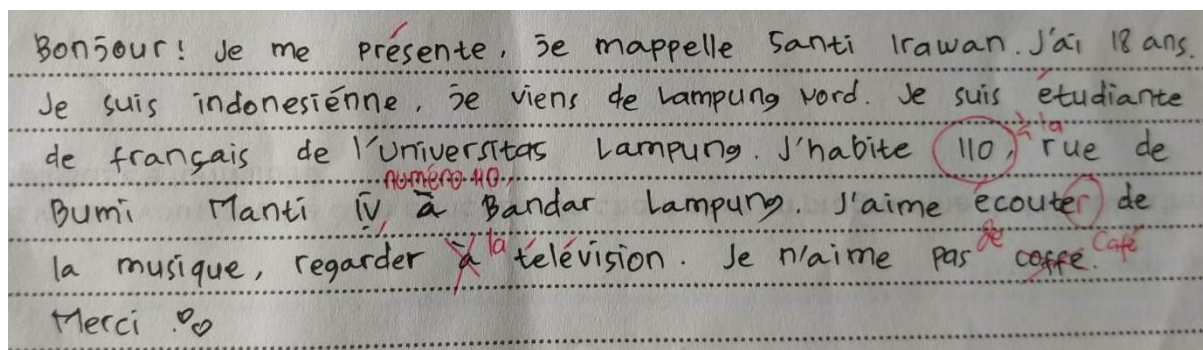 Bonjour! Je me présente, je mappelle Santi Irawan. J'ai 18 ans.
Je suis indonesiénne, je viens de Lampung Nord. Je suis étudiante
de français de l'Universitas Lampung. J'habite 110, à la rue de
numéro 110,
Bumi Manti IV, à Bandar Lampung. J'aime écouter de
la musique, regarder à la télévision. Je n'aime pas de coffé. Café
Merci